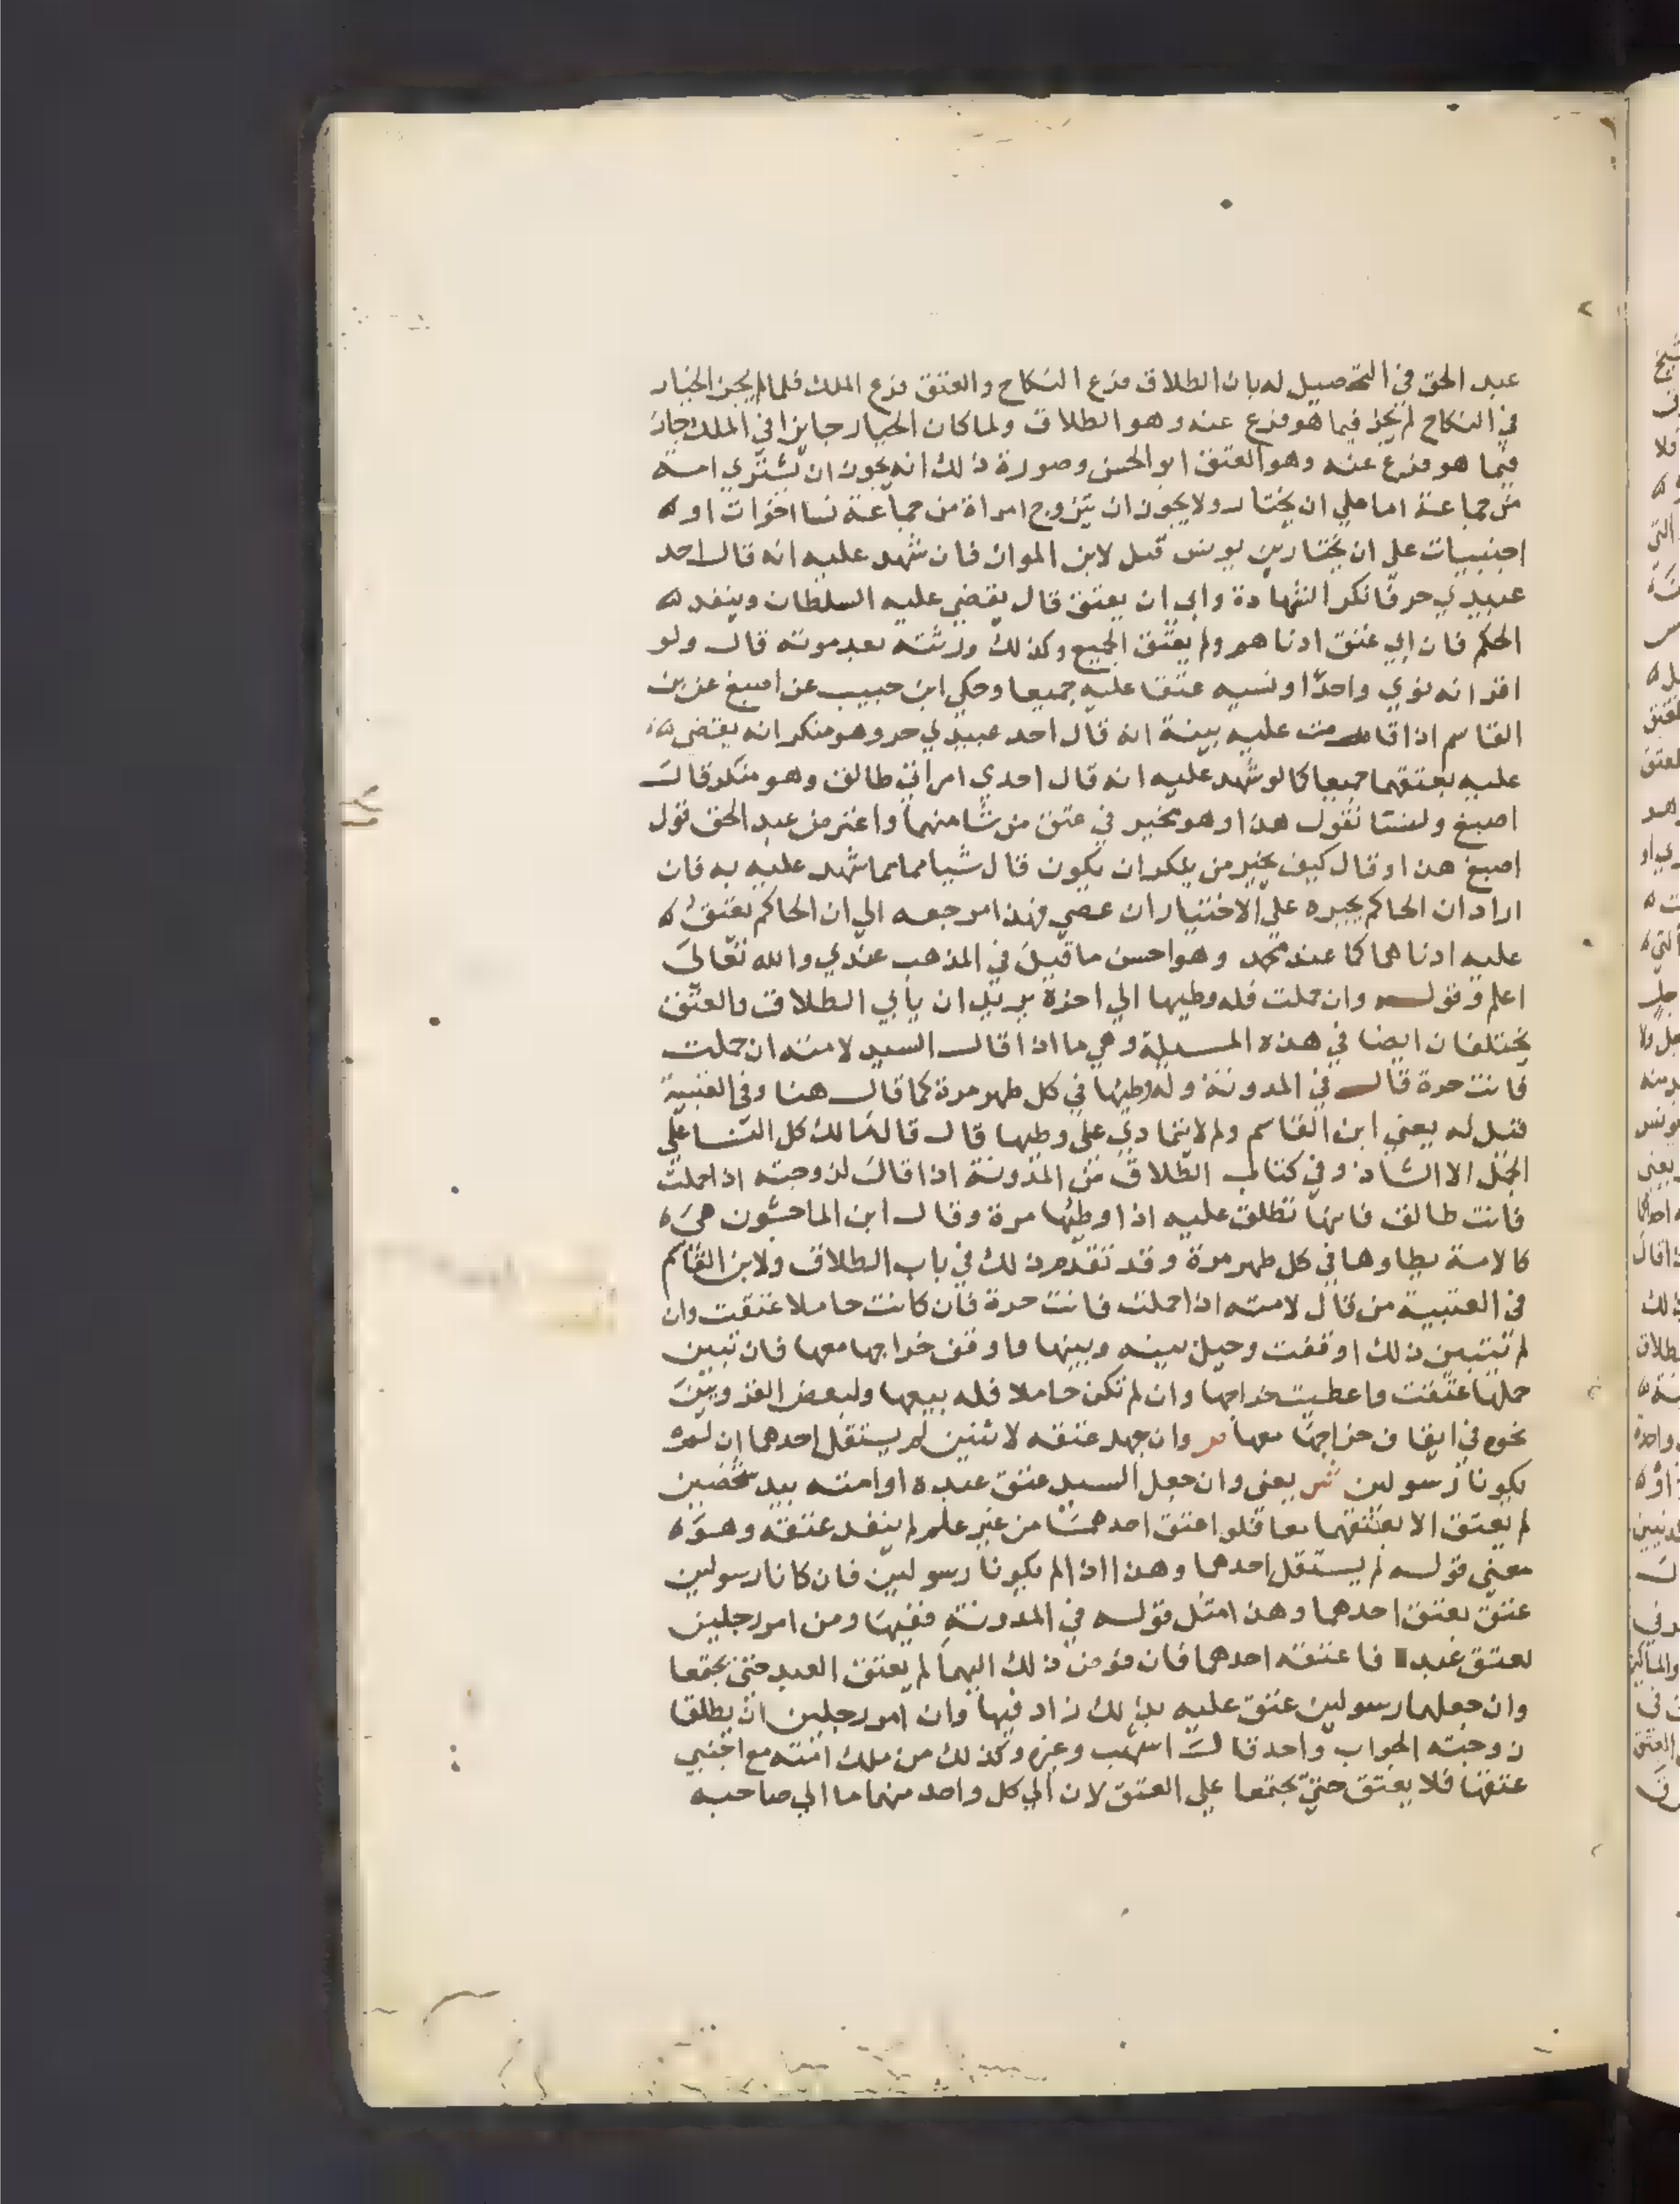 عبد الحق في التحصيل له بان الطلاق فرع النكاح والعتق فرع الملك فلما لم يجز الخيار
في النكاح لم يجز فيما هو فرع عنه وهو الطلاق ولما كان الخيار جايزا في الملك جاز
فيما هو فرع عنه وهو العتق ابو الحسن وصورة ذلك انه يجوز ان يشتري امة
من جماعة اما علي ان يختار ولا يجوز ان يتزوج امراة من جماعة نسا اخوات او
اجنبيات علي ان يختار بن يونس قيل لابن المواز فان شهد عليه انه قال احد
عبيدي حر فانكر الشهادة وابي ان يعتق قال يقضي عليه السلطان وينفد
الحكم فان ابي عتق ادناهم ولم يعتق الجميع وكذلك ورثته بعد موته قال ولو
اقر انه نوي واحدا ونسيه عتقا عليه جميعا وحكي ابن حبيب عن اصبغ عن بن
القاسم اذا قامت عليه بينة انه قال احد عبيدي حر وهو منكر انه يقضي
عليه بعتقهما جميعا كما لو شهد عليه انه قال احدي امراتي طالق وهو منكر قال
اصبغ ولسنا نقول هذا وهو مخير في عتق من شا منهما واعترض عبد الحق قول
اصبغ هذا وقال كيف يخير من ينكر ان يكون قال شيا مما شهد عليه به فان
اراد ان الحاكم يجبره علي الاختيار ان عصي فهذا مرجعه الي ان الحاكم يعتق
عليه ادناهما كما عند محمد وهو احسن ما قيل في المذهب عندي والله تعالي
اعلم وقوله وان حملت فله وطيها الي اخره يريد ان يابي الطلاق والعتق
يختلفان ايضا في هذه المسيلة وهي ما اذا قال السيد لامته ان حملت
فانت حرة قال في المدونة وله وطيها في كل طهر مرة كما قال هنا وفي العتبية
قيل له يعني ابن القاسم ولم لا يتمادي علي وطيها قال قال مالك كل النسا علي
الحمل الا الشاذ وفي كتاب الطلاق من المدونة اذا قال لزوجته اذا حملت
فانت طالق فانها تطلق عليه اذا وطيها مرة وقال ابن الماجشون هي
كالامة يطاوها في كل طهر مرة وقد تقدم ذلك في باب الطلاق ولابن القاسم
في العتبية من قال لامته اذا حملت فانت حرة فان كانت حاملا عتقت وان
لم تتبين ذلك اوقفت وحيل بينه وبينها واوقف خراجها معها فان تبين
حملها عتقت واعطيت خراجها وان لم تكن حاملا فله بيعها ولبعض القرويين
نحوه في ايقاف خراجها معها ص وان جعل عتقه لاثنين لم يستقل احدهما ان لم
يكونا رسولين ش يعني وان جعل السيد عتق عبده او امته بيد شخصين
لم يعتق الا بعتقهما معا فلو اعتق احدهما من غير علم لم ينفد عتقه وهو
معني قوله لم يستقل احدهما وهذا اذا لم يكونا رسولين فان كانا رسولين
عتق بعتق احدهما وهذا مثل قوله في المدونة ففيها ومن امر رجلين
بعتق عبد فاعتقه احدهما فان فوض ذلك اليهما لم يعتق العبد حتي يجتمعا
وان جعلهما رسولين عتق عليه بذلك زاد فيها وان امر رجلين ان يطلقا
زوجته الجواب واحد قال اشهب وغيره وكذلك من ملك امته مع اجنبي
عتقها فلا يعتق حتي يجتمعا علي العتق لان الي كل واحد منهما ما الي صاحبه